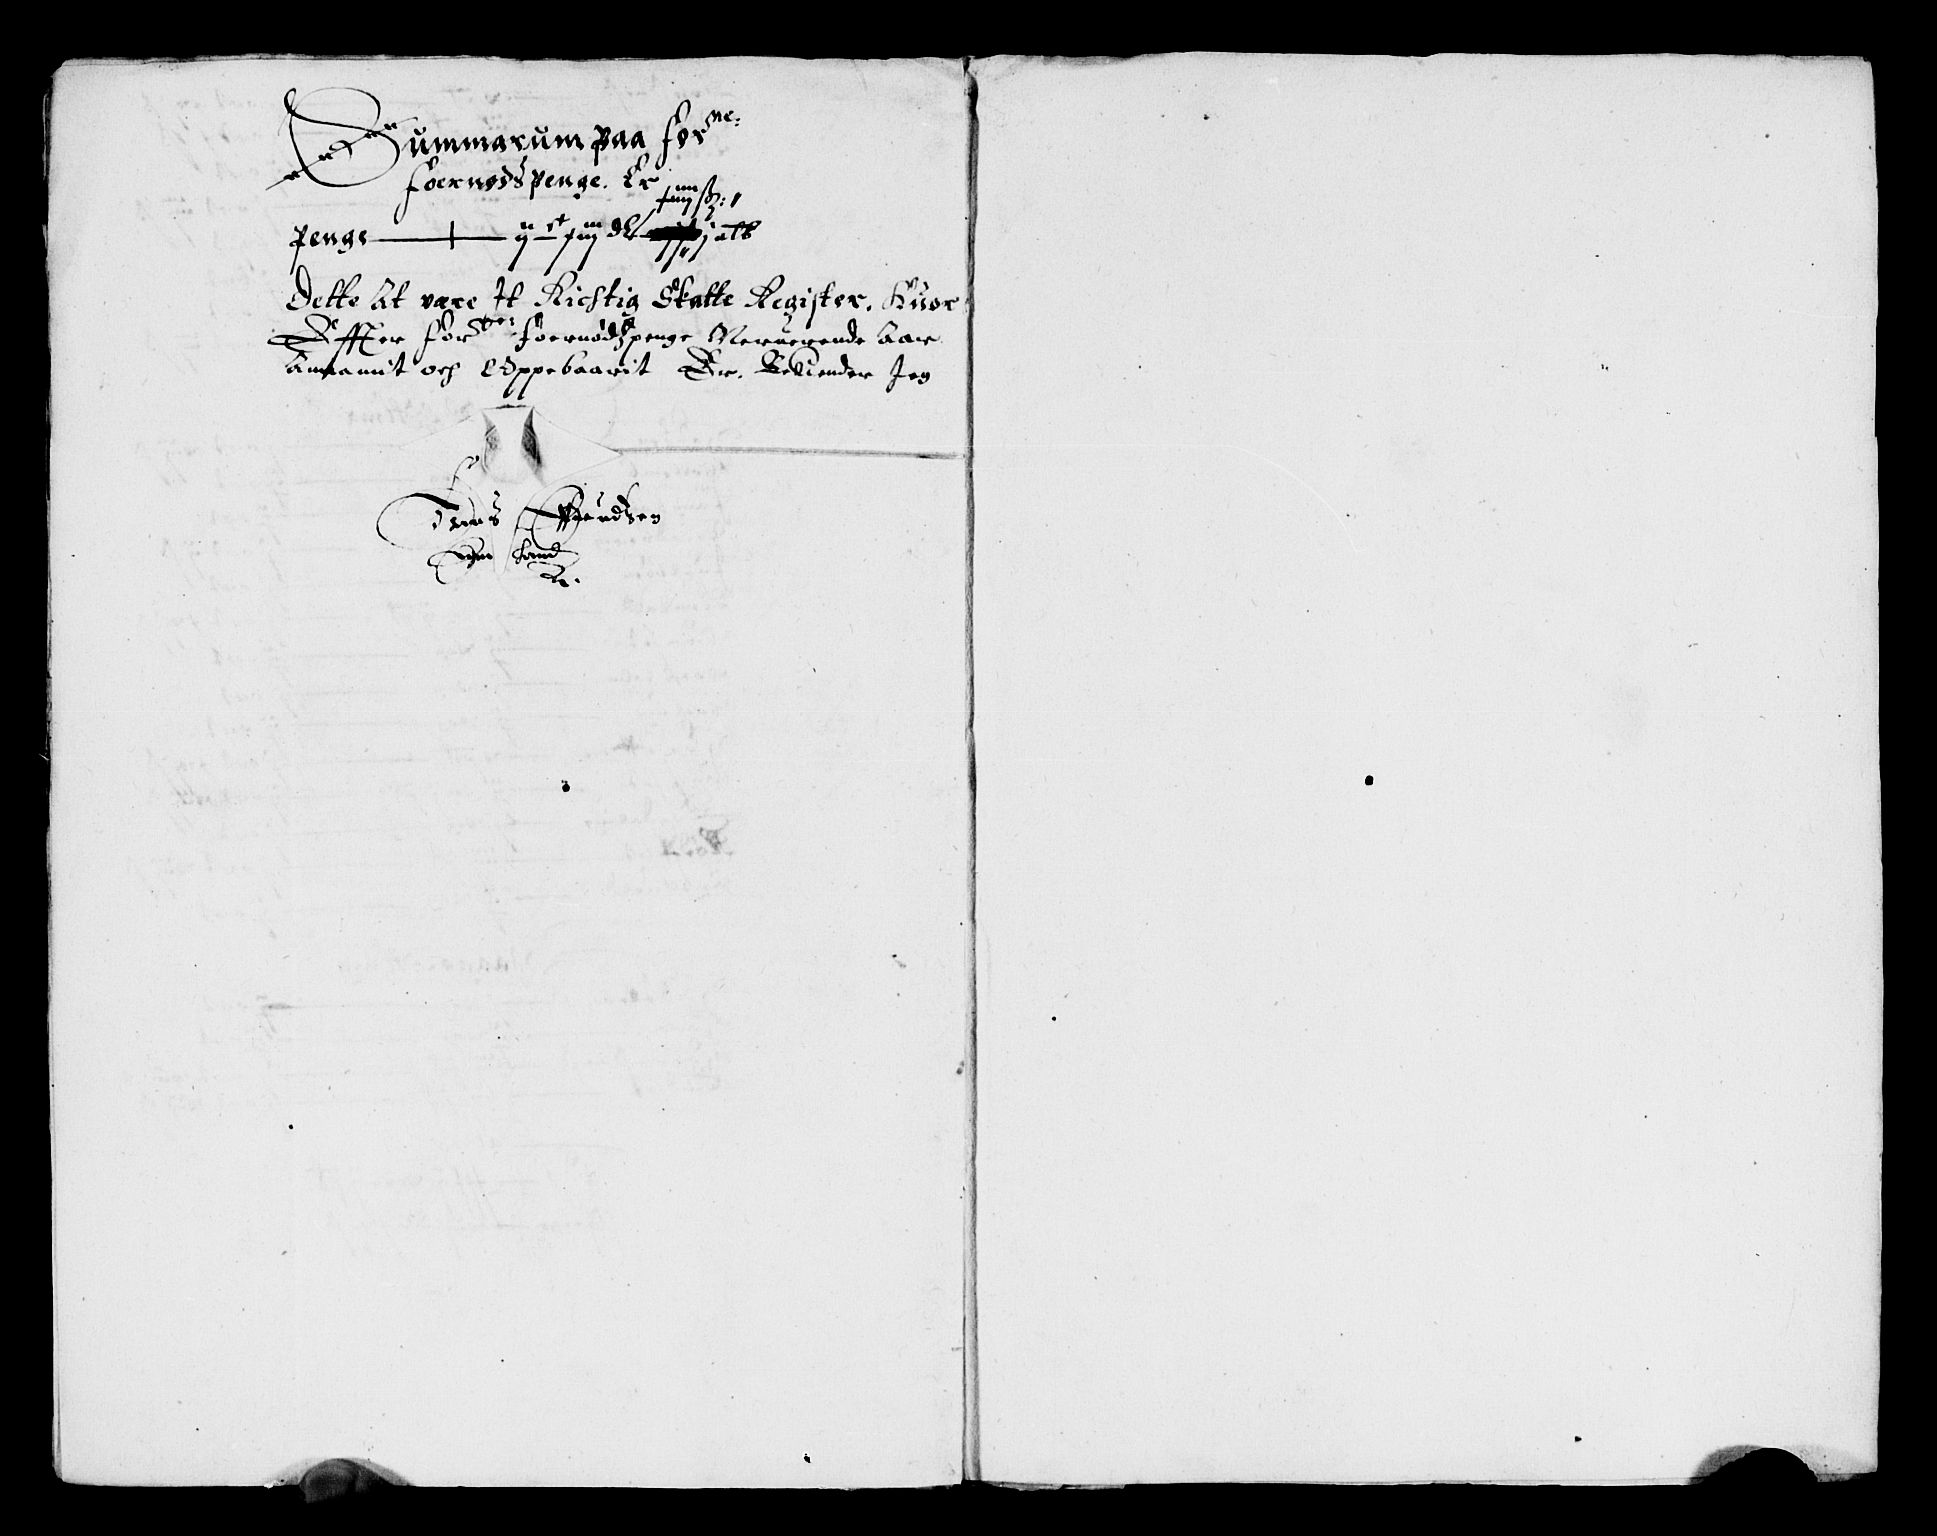 Summarum paa for:ne:
foernødspenge. Er
penge ij c dl j alb
Dette At være Et Richtig Skatte Register. Huor
Effter for:ne: foernødspenge Neruerende Aar
Annamit och Oppebaarit Er. Bekiender Jeg
Knudsen
Egen hand